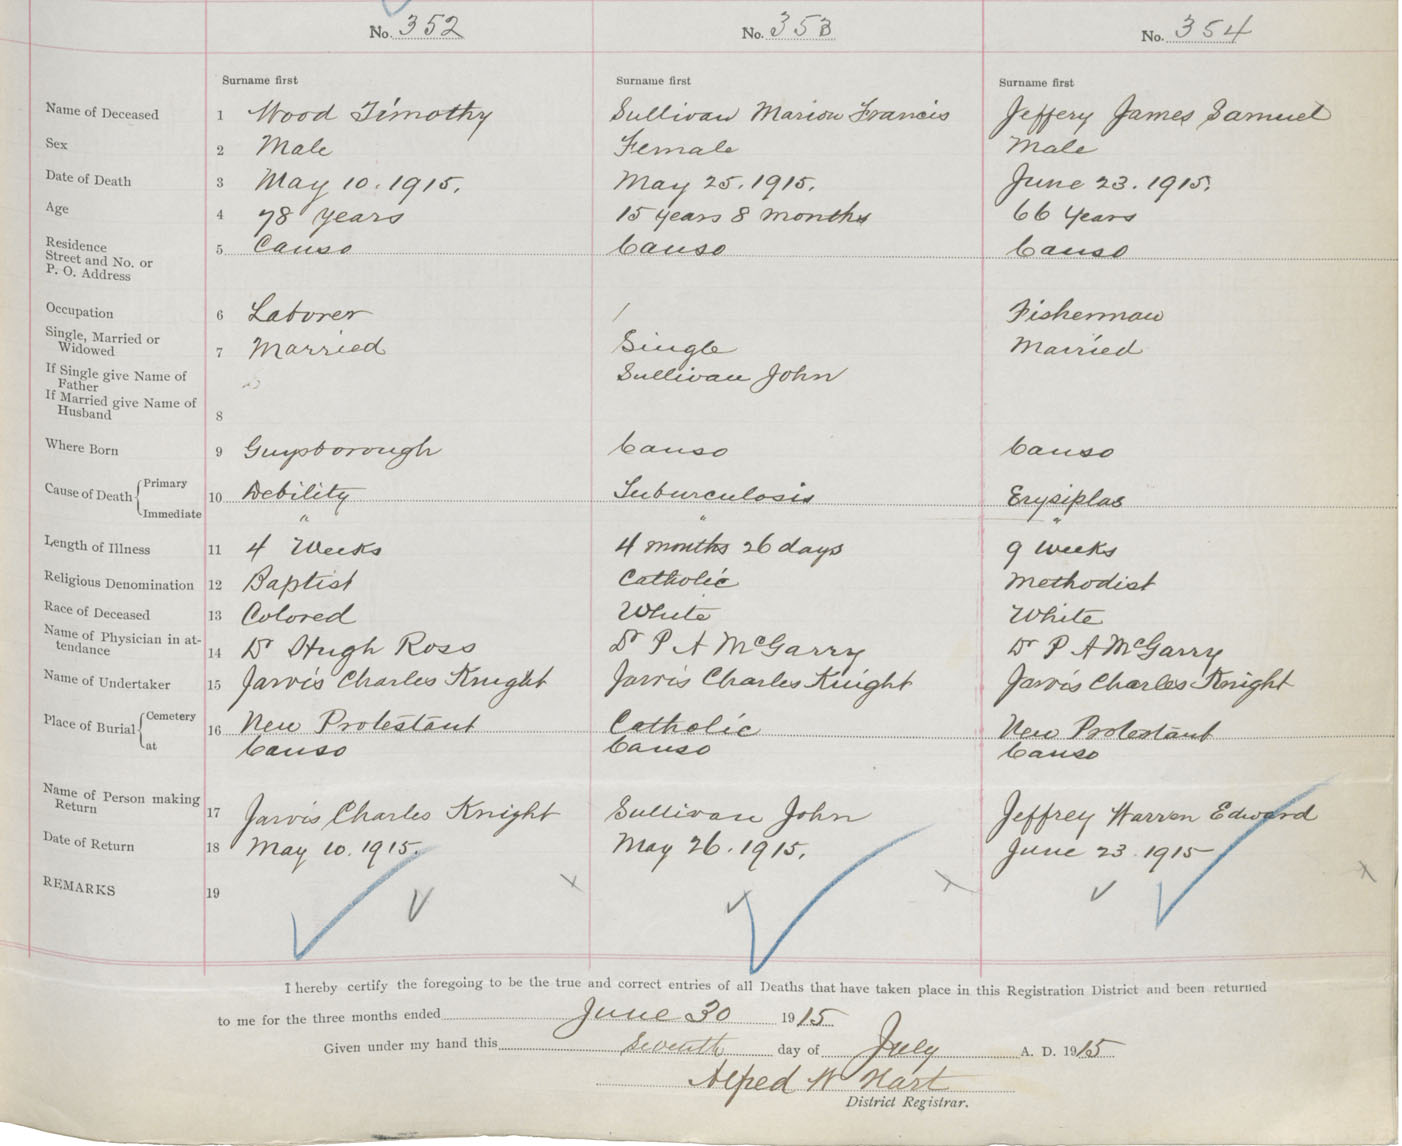 No. 352 No. 353 No. 354
Surname first Surname first Surname first
Name of Deceased 1 Wood Timothy Sullivan Marion Francis Jeffery James Samuel
Sex 2 Male Female Male
Date of Death 3 May 10. 1915. May 25. 1915. June 23. 1915.
Age 4 78 years 15 years 8 months 66 years
Residence 5 Canso Canso Canso
Street and No. or
P. O. Address
Occupation 6 Laborer / Fisherman
Single, Married or
Widowed 7 Married Single Married
If Single give Name of
Father Sullivan John
If Married give Name of
Husband 8
Where Born 9 Guysborough Canso Canso
Cause of Death { Primary 10 Debility Tuburculosis Erysiplas
Immediate " " "
Length of Illness 11 4 Weeks 4 months 26 days 9 weeks
Religious Denomination 12 Baptist Catholic Methodist
Race of Deceased 13 Colored White White
Name of Physician in at-
tendance 14 Dr Hugh Ross Dr P A McGarry Dr P A McGarry
Name of Undertaker 15 Jarvis Charles Knight Jarvis Charles Knight Jarvis Charles Knight
Place of Burial { Cemetery 16 New Protestant Catholic New Protestant
at Canso Canso Canso
Name of Person making
Return 17 Jarvis Charles Knight Sullivan John Jeffrey Warren Edward
Date of Return 18 May 10. 1915. May 26. 1915. June 23. 1915
REMARKS 19
I hereby certify the foregoing to be the true and correct entries of all Deaths that have taken place in this Registration District and been returned
to me for the three months ended June 30 1915
Given under my hand this Seventh day of July A. D. 1915
Alfred W Hart
District Registrar.